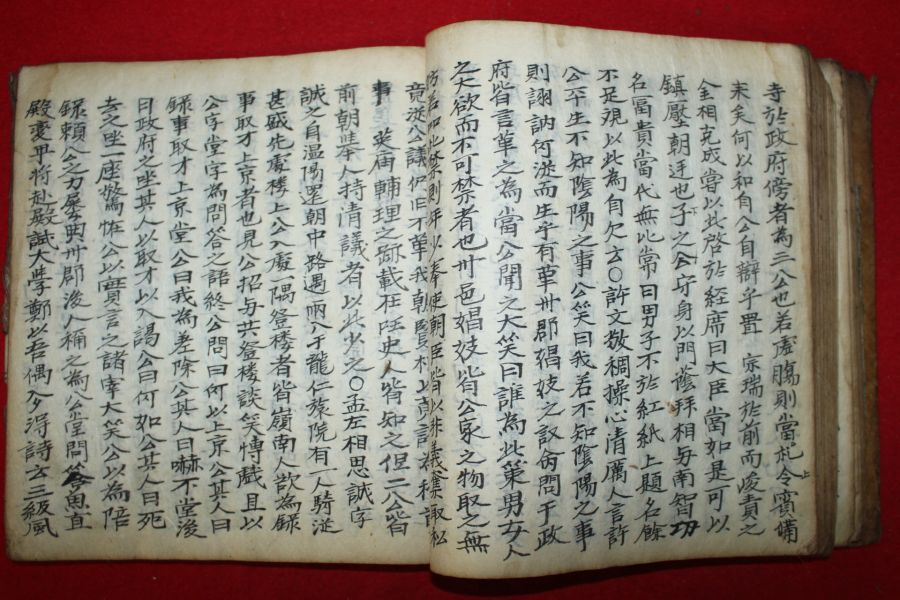 寺於政府傍者為三公也若虛膓則當札令賓備
末矣何以和自公自辭乎置 宗瑞於前而峻責之
金相克成嘗以此啓於経席曰大臣當如是可以
鎮壓朝廷也子之公守身以門蔭拜相与南智功
名冨貴當代無比常曰男子不於紅紙上題名餘
不足观以此為自欠云〇許文敬稠操心清厲人言許
公平生不知陰陽之事公笑曰我若不知陰陽之事
則詡訥何従而生乎有革州郡娼妓之议僉問于政
府皆言革之為當公聞之大笑曰誰為此策男女人
之大欲而不可禁者也州邑娼妓皆公家之物取之無
妨若如此禁則年少奉使朝臣皆以非義奪取私
竟送公議仍旧不革我朝賢相
事 英甫輔理之跡載在史人皆知之但二公皆
前朝挙人持清議者以此少之〇孟左相思誠字
誠之自温陽還朝中路遇雨入于龍仁旅院有一人騎従
甚盛先處楼上公入處一隅登楼者皆嶺南人欲為録
事取才上京者也見公招与共登楼談笑愽戱且以
公字堂字為問答之語終公問曰何以上京公其人曰
録事取才上京堂公曰我為差除公其人曰嚇不堂後
日政府之坐其人以取才以入謁公曰何如公其人曰死
去之坐一座驚怪公以實言之諸宰大笑公以為陪
録頼公之力屡典州郡後人稱之為公堂問答魚直
殿變甲将赴殿試大学鄭以吾偶夕得詩云三級風